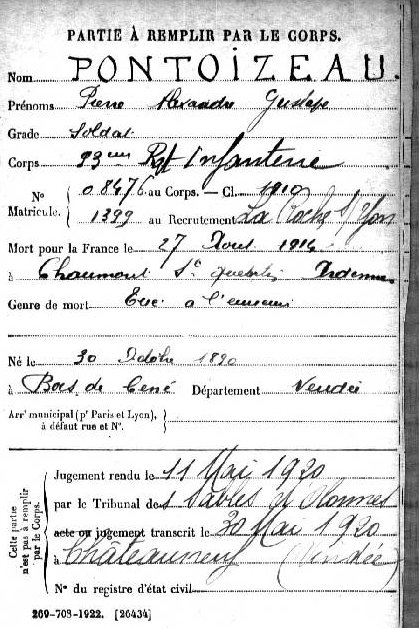 PARTIE À REMPLIR PAR LE CORPS.
Nom PONTOIZEAU.
Prénoms Pierre Alexandre Gustave
Grade Soldat
Corps 93eme Rgt Infanterie
N° Matricule. { 08476 au Corps. — Cl. 1910
1399 au Recrutement La Roche s/Yon
Mort pour la France le 27 Août 1914
à Chaumont St Quentin Ardennes
Genre de mort Tué à l'ennemi
Né le 30 Octobre 1890
à Bois de Cené Département Vendée
Arrt municipal (pr Paris et Lyon), à défaut rue et N°. {
Cette partie n'est pas à remplir par le Corps.
Jugement rendu le 11 Mai 1920
par le Tribunal des Sables d'Olonnes
acte ou jugement transcrit le 30 Mai 1920
à Châteauneuf (Vendée)
N° du registre d'état civil
269-708-1922. [26434]